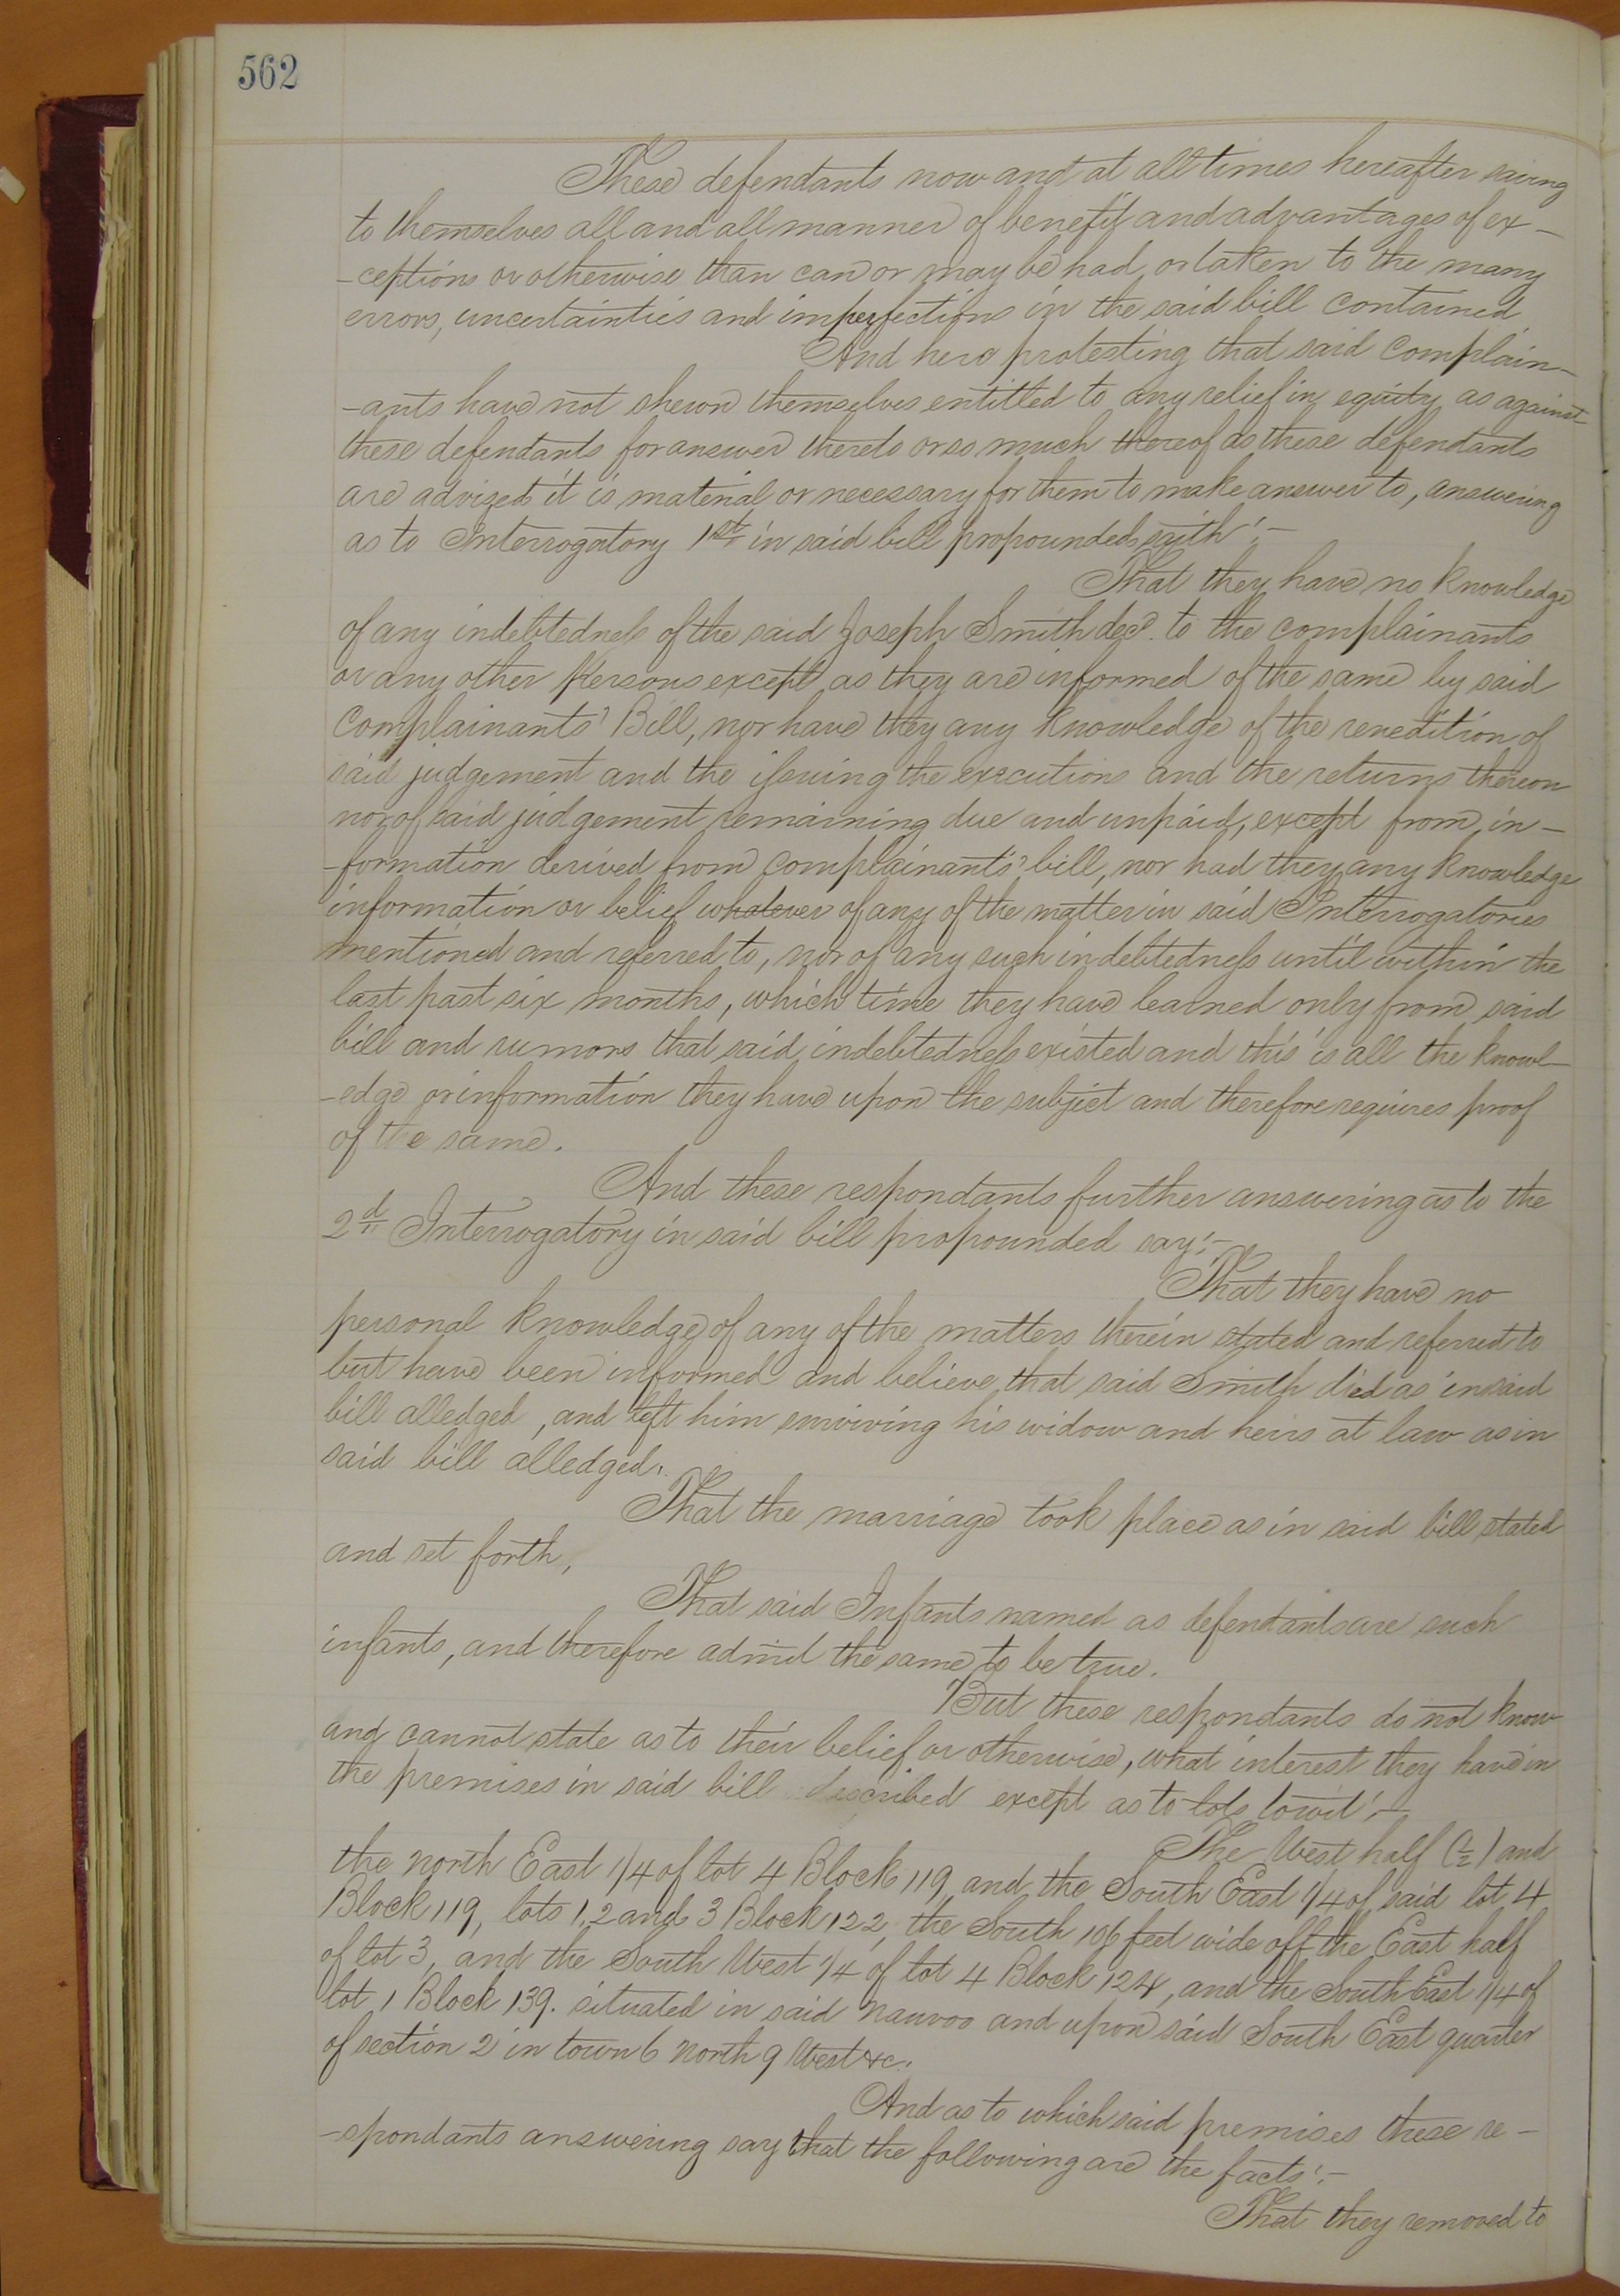 562
These defendants now and at all times hereafter saving
to themselves all and all manner of benefit and advantages of ex-
-ceptions or otherwise than can or may be had, or taken to the many
errors, uncertainties and imperfections in the said bill contained
And here protesting that said complain-
-ants have not shewn themselves entitled to any relief in equity as against
these defendants for answer thereto or so much thereof as these defendants
are advized it is material or necessary for them to make answer to, answering
as to Interrogatory 1st in said bill propounded saith:-
That they have no knowledge
of any indebtedness of the said Joseph Smith decd. to the complainants
or any other Persons except as they are informed of the same by said
complainants' Bill, nor have they any knowledge of the renedition of
said judgement and the issuing the executions and the returns thereon
nor of said judgement remaining due and unpaid, except from in-
-formation derived from complainants' bill, nor had they any knowledge
information or belief whatever of any of the matter in said Interrogatories
mentioned and referred to, nor of any such indebtedness until within the
last past six months, which time they have learned only from said
bill and rumors that said indebtedness existed and this is all the knowl-
-edge or information they have upon the subject and therefore requires proof
of the same.
And these respondants further answering as to the
2d Interrogatory in said bill propounded say:-
That they have no
personal knowledge of any of the matters therein stated and referred to
but have been informed and believe that said Smith died as in said
bill alledged, and left him surviving his widow and heirs at law as in
said bill alledged.
That the marriage took place as in said bill stated
and set forth,
That said Infants named as defendants are such
infants, and therefore admit the same to be true.
But these respondants do not know
and cannot state as to their belief or otherwise, what interest they have in
the premises in said bill described except as to lots towit:-
The West half (½) and
the north East 1/4 of lot 4 Block 119, and the South East 1/4 of said lot 4
Block 119, lots 1, 2 and 3 Block 122, the South 106 feet wide off the East half
of lot 3, and the South West 1/4 of lot 4 Block 124, and the South East 1/4 of
lot 1 Block 139. situated in said nauvoo and upon said South East quarter
of section 2 in town 6 north 9 West &c.
And as to which said premises these re-
-spondants answering say that the following are the facts:-
That they removed to